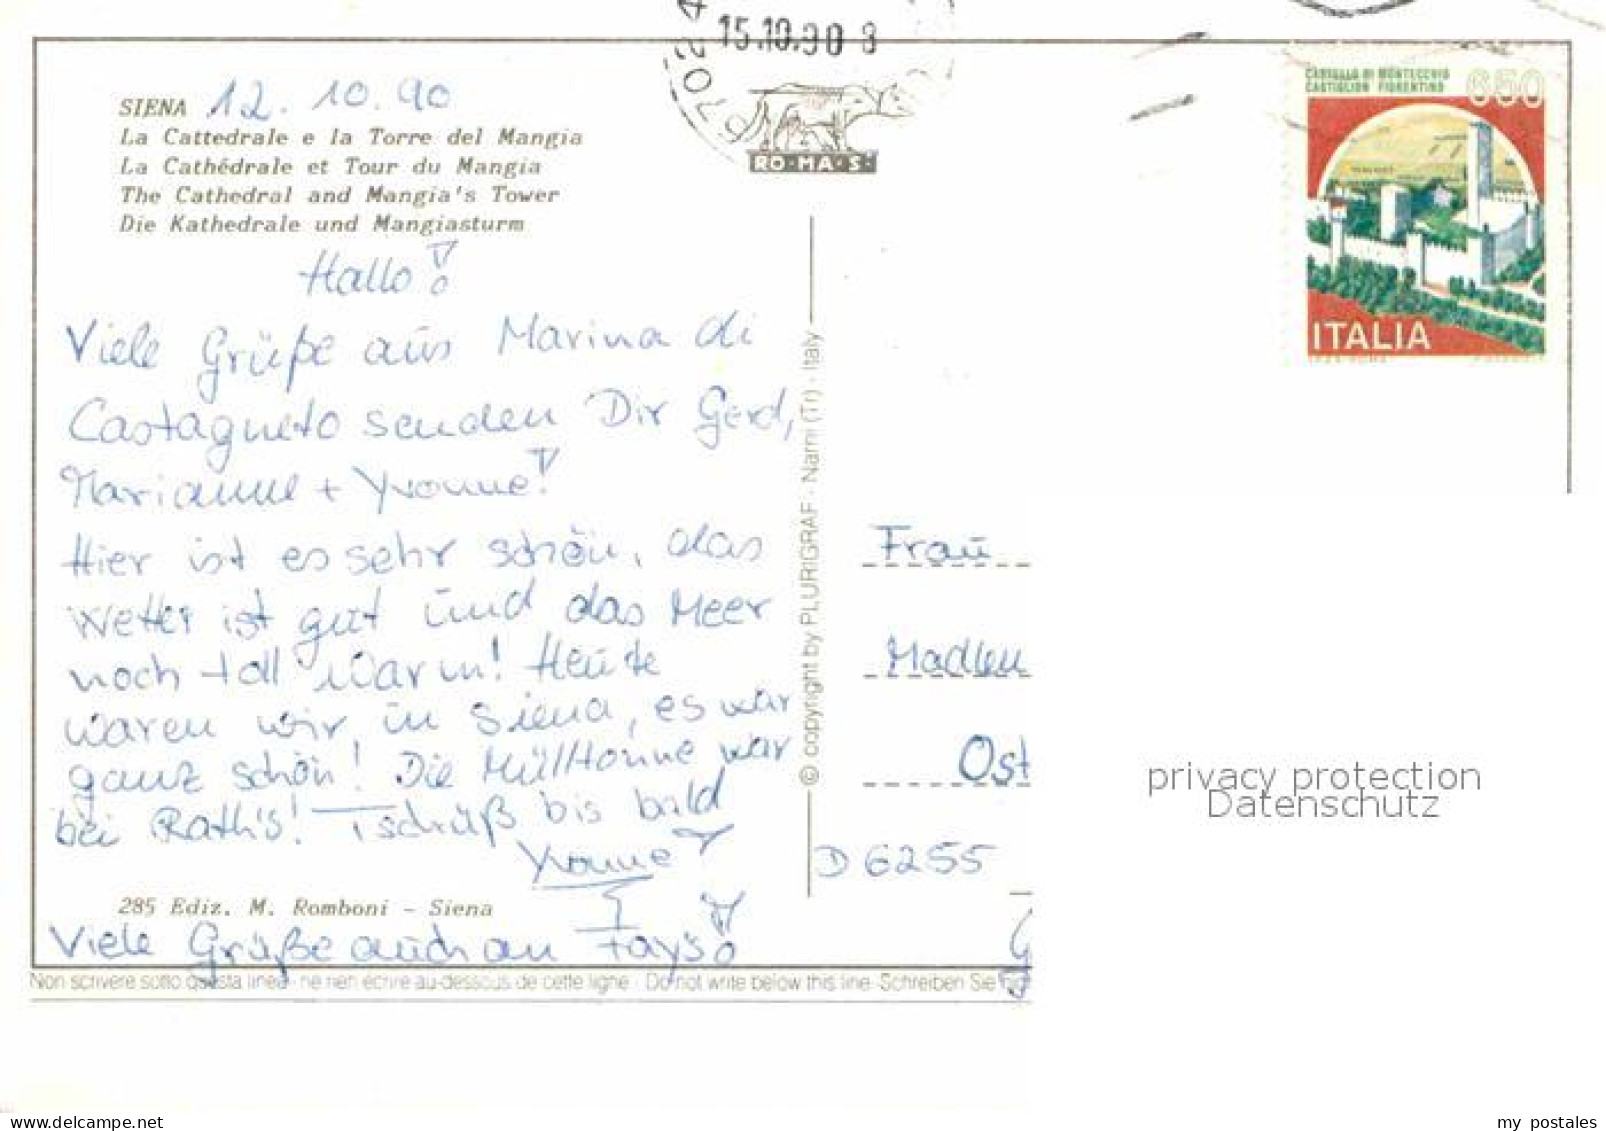 15.10.90 8
RO-MA-S
CASTELLO DI MONTECCHIO
CASTIGLION FIORENTINO 650
ITALIA
SIENA 12. 10. 90
La Cattedrale e la Torre del Mangia
La Cathédrale et Tour du Mangia
The Cathedral and Mangia's Tower
Die Kathedrale und Mangiasturm
Hallo!
Viele Grüße aus Marina di
Castagneto senden Dir Gerd,
Marianne + Yvonne!
Hier ist es sehr schön, das
Wetter ist gut und das Meer
noch toll warm! Heute
waren wir in Siena, es war
ganz schön! Die Mülltonne war
bei Rath's! Tschüß bis bald
Yvonne
285 Ediz. M. Romboni - Siena
Viele Grüße auch an Fays!
Non scrivere sotto questa linea - ne rien écrire au-dessous de cette ligne - Do not write below this line - Schreiben Sie
© copyright by PLURIGRAF - Narni (Tr) - Italy
Frau
Madlen
Ost
D 6255
privacy protection
Datenschutz
my postales